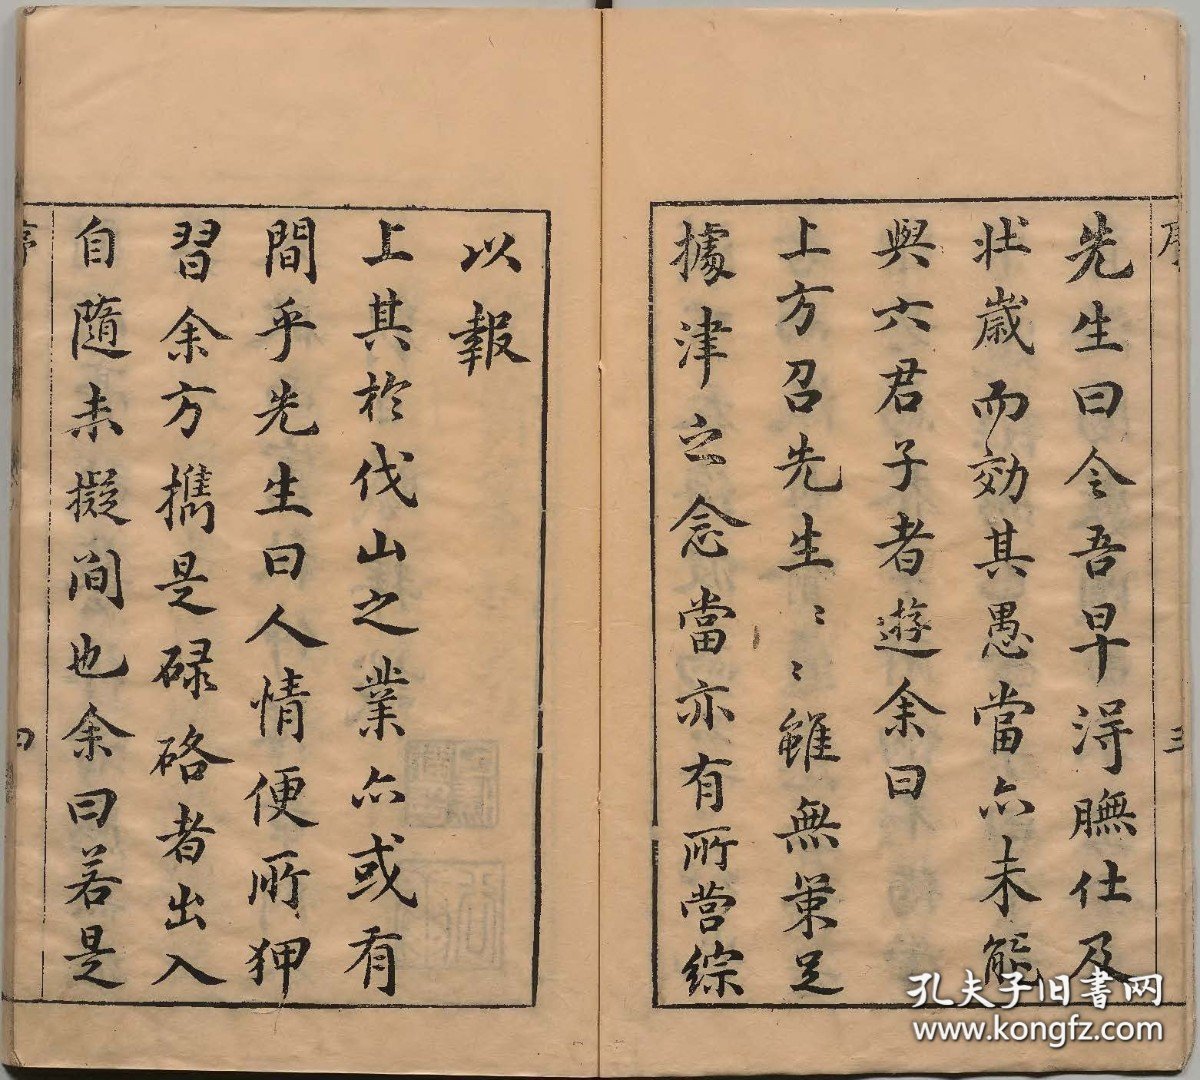 序
三
先生曰令吾早得膴仕及
壯歲而効其愚當亦未能
與六君子者遊余曰
上方召先生〻〻雖無策足
據津之念當亦有所营綜
以報
上其於伐山之業亦或有
間乎先生曰人情便所狎
習余方攜是碌硌者出入
自隨未擬間也余曰若是
序
四
孔夫子旧書网
www.kongfz.com